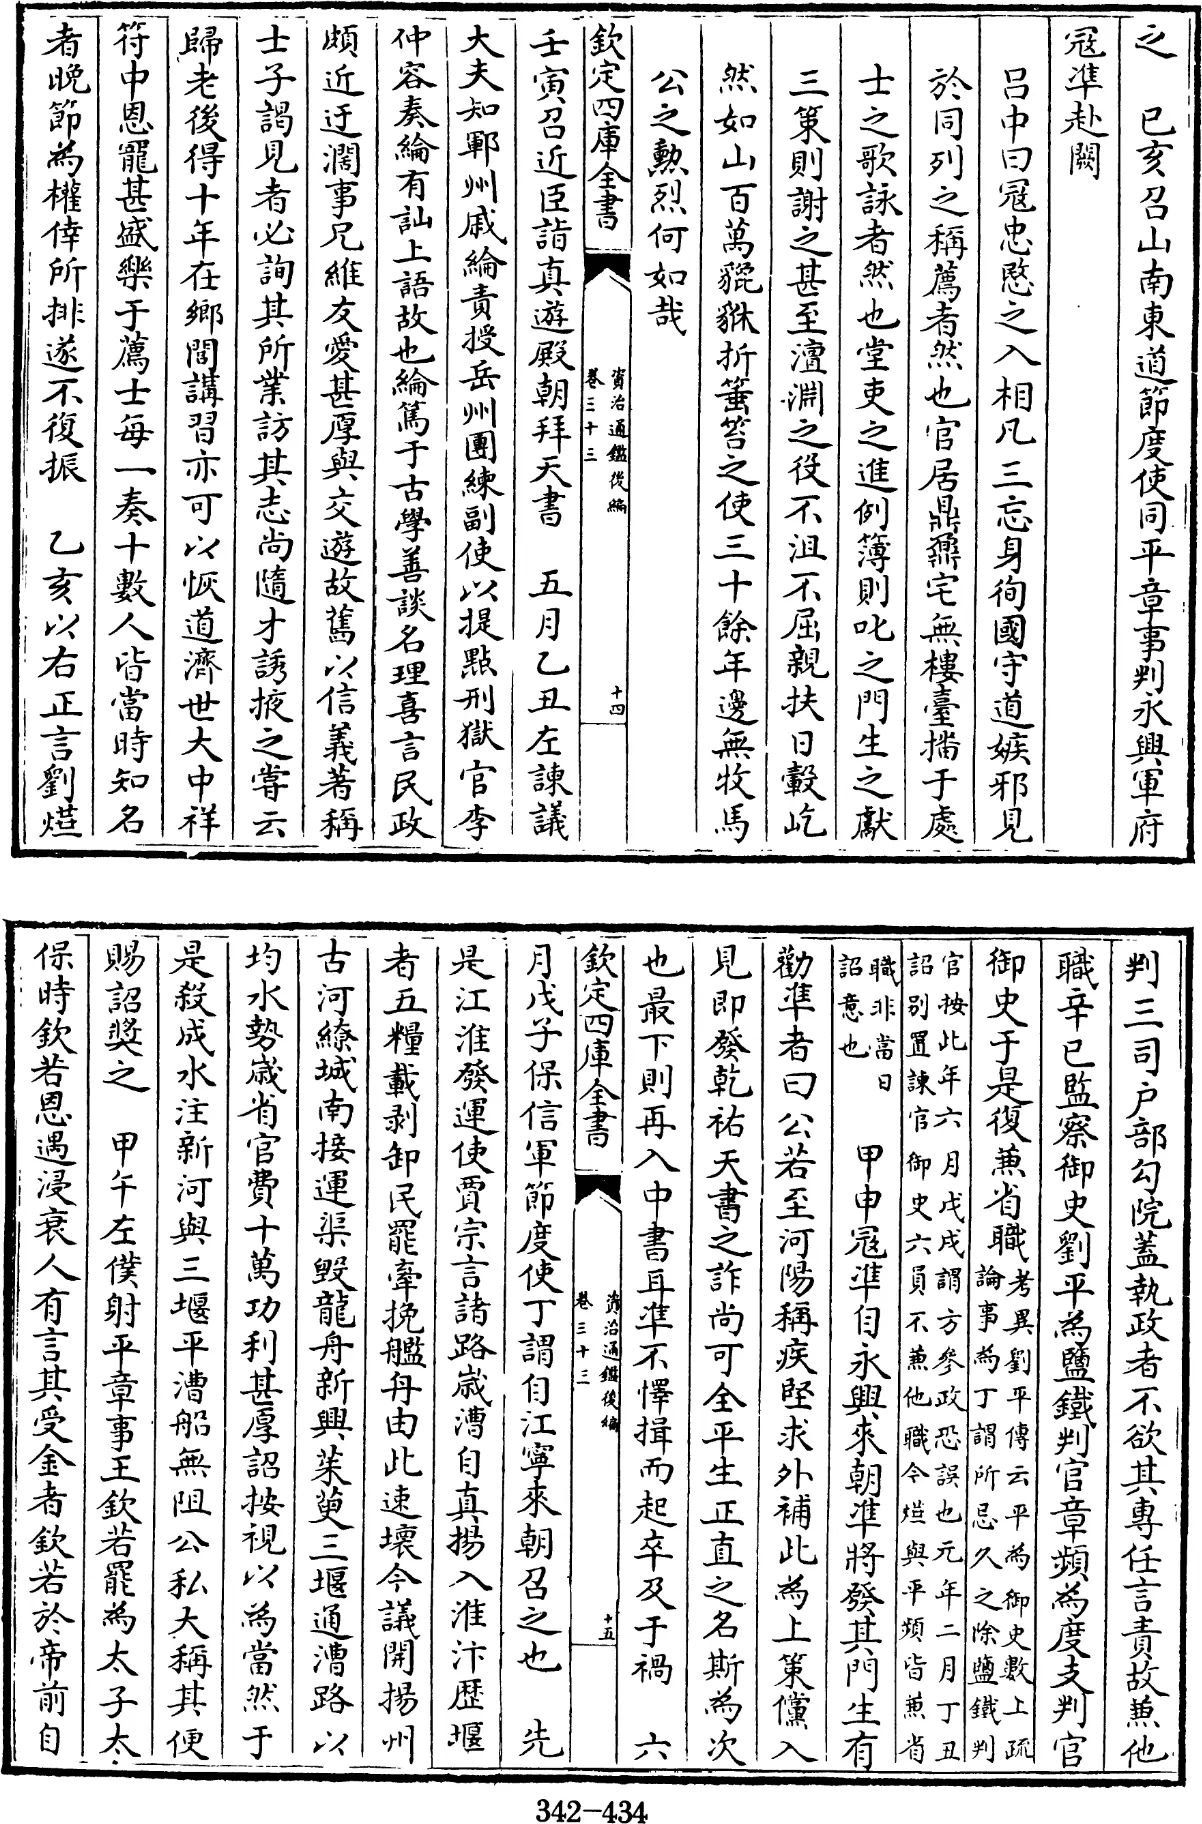 之　已亥召山南東道節度使同平章事判永興軍府
冦準赴闕
吕中曰冦忠愍之入相凡三忘身徇國守道嫉邪見
於同列之稱薦者然也官居鼎鼐宅無樓臺播于處
士之歌詠者然也堂吏之進例簿則叱之門生之獻
三策則謝之甚至澶淵之役不沮不屈親扶日轂屹
然如山百萬貔貅折箠笞之使三十餘年邊無牧馬
公之勲烈何如哉
欽定四庫全書
資治通鑑後編
卷三十三
十四
壬寅召近臣詣真遊殿朝拜天書　五月乙丑左諫議
大夫知鄆州戚綸責授岳州團練副使以提點刑獄官李
仲容奏綸有訕上語故也綸篤于古學善談名理喜言民政
頗近迂濶事兄維友愛甚厚與交遊故舊以信義著稱
士子謁見者必詢其所業訪其志尚隨才誘掖之嘗云
歸老後得十年在鄉閭講習亦可以恢道濟世大中祥
符中恩寵甚盛樂于薦士每一奏十數人皆當時知名
者晚節為權倖所排遂不復振　乙亥以右正言劉煜
判三司户部勾院葢執政者不欲其專任言責故兼他
職辛已監察御史劉平為鹽鐵判官章頻為度支判官
御史于是復兼省職考異劉平傳云平為御史數上疏
論事為丁謂所忌久之除鹽鐵判
官按此年六月戊戌謂方參政恐誤也元年二月丁丑
詔别置諫官御史六員不兼他職令煜與平頻皆兼省
職非當日
詔意也　甲申冦準自永興來朝準將發其門生有
勸準者曰公若至河陽稱疾堅求外補此為上策儻入
見即發乾祐天書之詐尚可全平生正直之名斯為次
也最下則再入中書耳準不懌揖而起卒及于禍　六
欽定四庫全書
資治通鑑後編
卷三十三
十五
月戊子保信軍節度使丁謂自江寧來朝召之也　先
是江淮發運使賈宗言諸路歲漕自真揚入淮汴歴堰
者五糧載剥卸民罷牽挽艦舟由此速壞今議開揚州
古河繚城南接運渠毁龍舟新興茱萸三堰通漕路以
均水勢歲省官費十萬功利甚厚詔按視以為當然于
是殺成水注新河與三堰平漕船無阻公私大稱其便
賜詔奬之　甲午左僕射平章事王欽若罷為太子太
保時欽若恩遇浸衰人有言其受金者欽若於帝前自
342-434